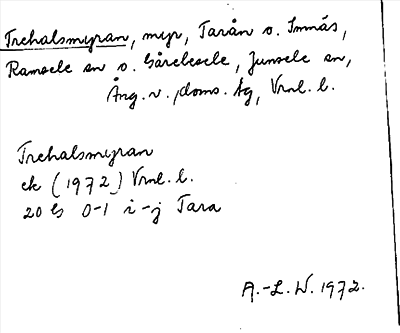 Trehalsmyran, myr, Tarån o. Imnäs,
Ramsele sn o. Gårelesele, Junsele sn,
Ång. v. doms. äg, Vrnl. l.
Trehalsmyran
ek (1972) Vrnl. l.
20 G 0-1 i-j Tara
A.-L. W. 1972.